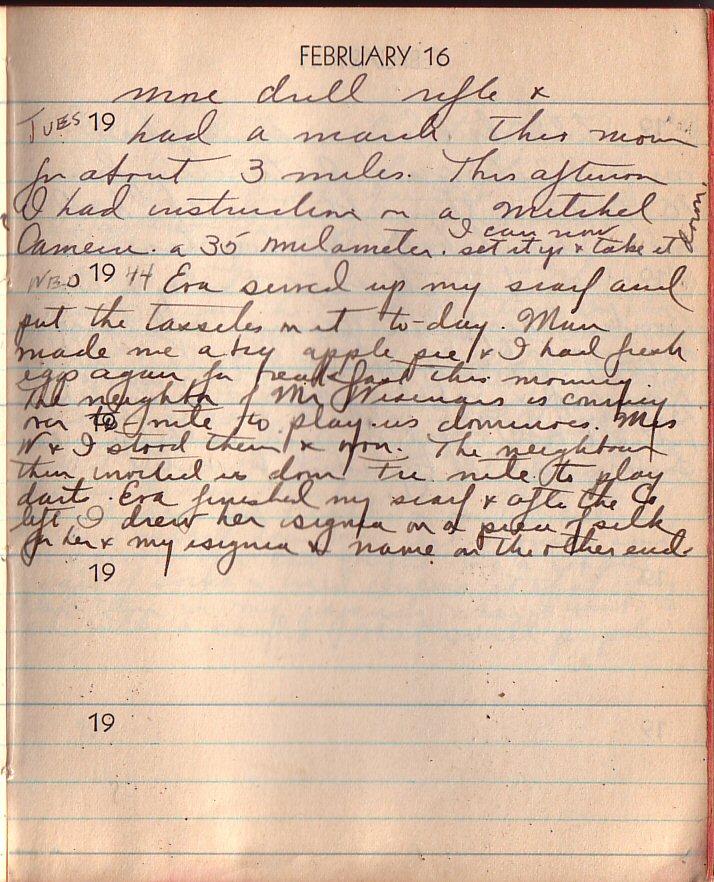 FEBRUARY 16
more drill rifle &
TUES 19 had a march. This morn
for about 3 miles. This afternoon
I had instruction on a Mitchel
Camera. a 35 milameter. I can now set it up & take it down.
WED 19 44 Eva served up my scarf and
put the tassiles on it to-day. Mum
made me a try apple pie & I had fresh
eggs again for breakfast this morning.
The neighbor of Mr Wiseman's is coming
over to-nite to play us dominoes. Mrs
W & I stood them & won. The neighbour
then invited us down Fri nite to play
darts. Eva finished my scarf & after the Co
left I drew her isignia on a piece of silk
for her & my isignia & name on the other end.
19
19